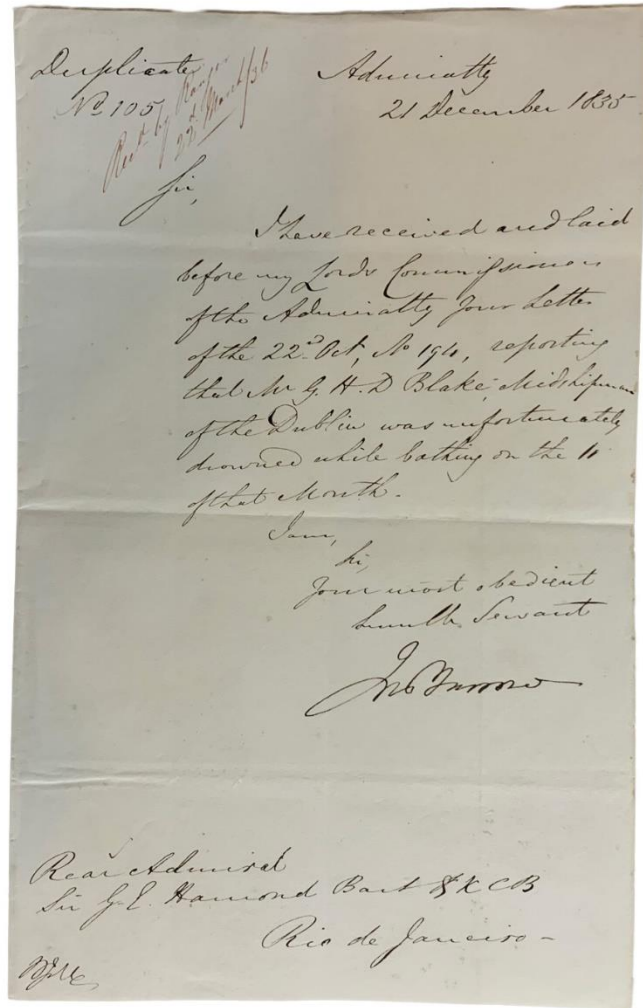 Duplicate
No 105
Recd by Ranger
22d March/36
Admiralty
21 December 1835
Sir,
I have received and laid
before my Lords Commissioners
of the Admiralty Your Letter
of the 22d Oct, No 194, reporting
that Mr G. H. D Blake, Midshipman
of the Dublin was unfortunately
drowned while bathing on the 11
of that Month.
I am,
Sir,
Your most obedient
humble Servant
Jno Barrow
Rear Admiral
Sir G. E. Hamond Bart & KCB
Rio de Janeiro -